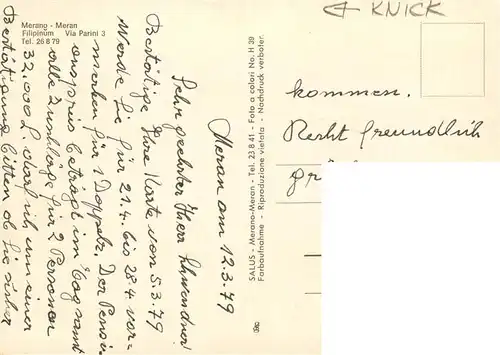 Merano - Meran
Filipinum Via Parini 3
Tel. 26 8 79
KNICK
Meran am 12.3.79
Sehr geehrter Herr Schwendner!
Bestätige Ihre Karte von 5.3.79
Werde Sie für 21.4. bis 28.4. vor-
merken für 1 Doppelz. Der Pensi-
onspreis beträgt im Tag samt
alle Zuschläge für 2 Personen
32.000 L. darf ich um einer
Bestätigung bitten ob Sie sicher
kommen.
Recht freundlich
Grü
SALUS - Merano-Meran - Tel. 23 8 41 - Foto a colori No. H 39
Farbaufnahme - Riproduzione vietata - Nachdruck verboten.